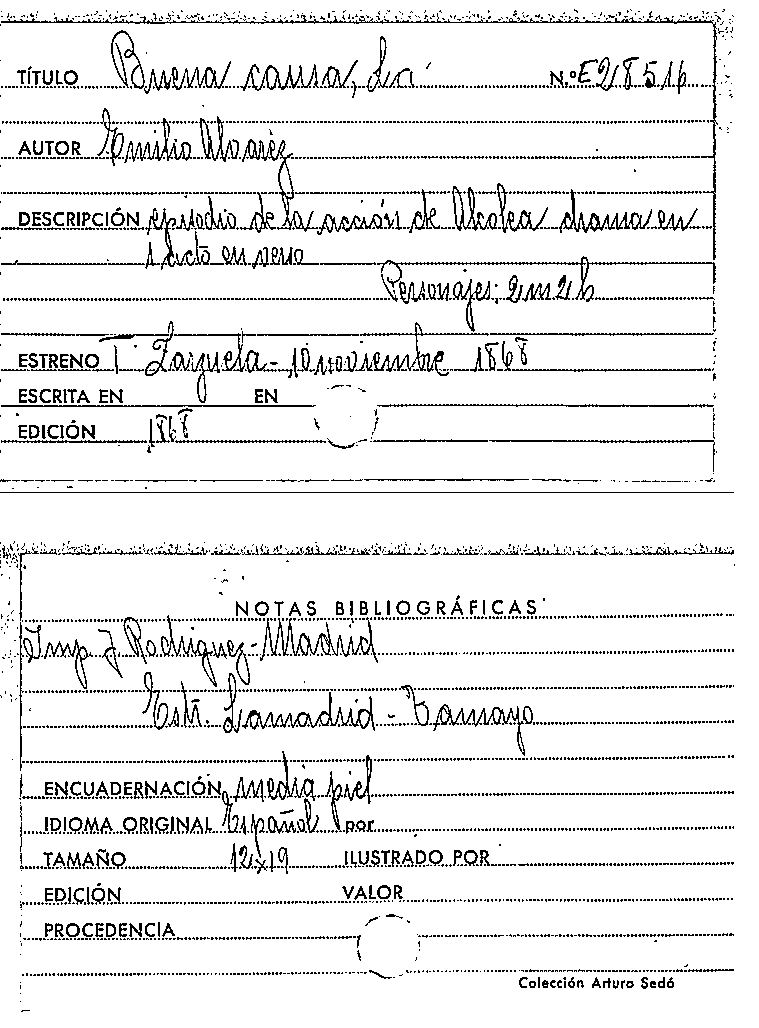 TÍTULO Buena causa, La N.º E28516
AUTOR Emilio Alvarez
DESCRIPCIÓN episodio de la acción de Alcolea drama en
1 acto en verso
Personajes: 2m 2h
ESTRENO T. Zarzuela - 10 noviembre 1868
ESCRITA EN EN
EDICIÓN 1868
NOTAS BIBLIOGRÁFICAS
Imp J Rodriguez - Madrid
Estr. Lamadrid - Tamayo
ENCUADERNACIÓN media piel
IDIOMA ORIGINAL Español por
TAMAÑO 12x19 ILUSTRADO POR
EDICIÓN VALOR
PROCEDENCIA
Colección Arturo Sedó